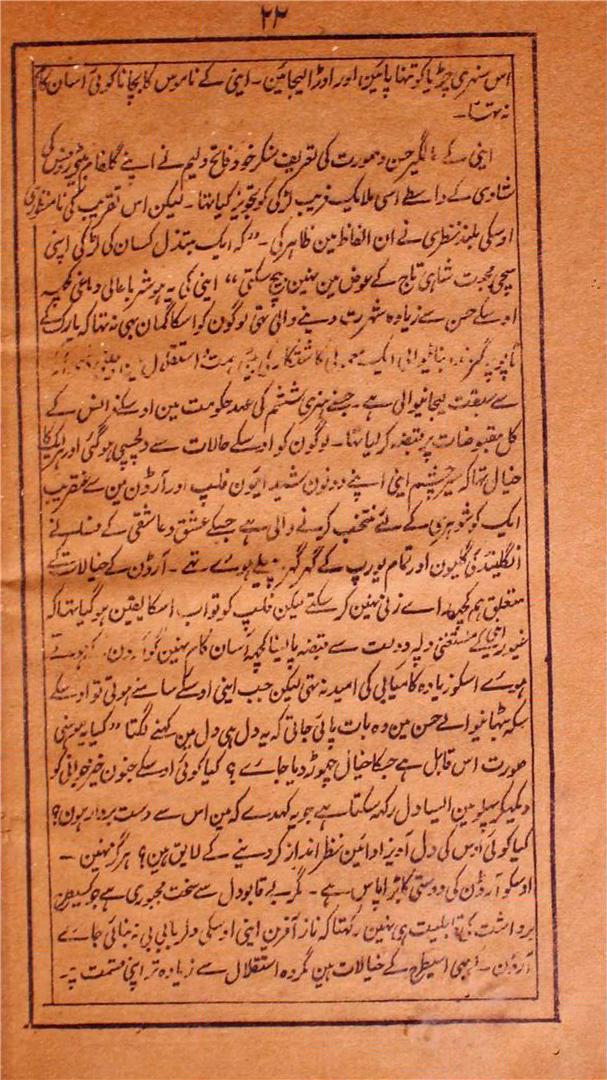 ۲۳
اس سنہری چڑیا کو تنہا پائین اور اوڑا لیجائین ۔ اینی کے ناموس کا بچانا کوئی آسان کام
نہ تہا ۔
اینی کے حسن وصورت کی تعریف سنکر خود فاتح ولیم نے اپنے گلفام کی
شادی کے واسطے اسی ملایک فریب لڑکی کو تجویز کیا تہا ۔ لیکن اس تقریب کی نامنظوری
اوسکی بلند نظری نے ان الفاظ مین ظاہر کی ۔ " کہ ایک مبتذل کسان کی لڑکی اپنی
سچی محبت شاہی تاج کے عوض مین نہین بیچ سکتی " اینی کی یہ موثر باعالی دماغی کچہہ
اوسکے حسن سے زیادہ شہرت دینے والی تہی لوگون کو اسکا گمان بہی نہ تہا کہ یارک کے
ایک معمولی کاشتکار کی بیٹی ہمت و استقلال مین
سے سبقت لیجانیوالی ہے ۔ جسنے ہنری ششم کی عہد حکومت مین اوسکے فرانس کے
کل مقبوضات پر قبضہ کر لیا تہا ۔ لوگون کو اوسکے حالات سے دلچسپی ہوگئی اور ہر ایک کا
خیال تہا کہ اینی اپنے دونون شیدائیون فلپ اور آرڈن مین سے عنقریب
ایک کو شوہری کے لئے منتخب کرنے والی ہے جسکے عشق و عاشقی کے فسانے
انگلینڈ کی گلیون اور تمام یورپ کے گہر گہر پہیلے ہوے تہے ۔ آرڈن کے خیالات کے
متعلق ہم کچہہ راے زنی نہین کر سکتے لیکن فلپ کو تو اب اسکا یقین ہوگیا تہا کہ
غیور اینی کے مستغنی دل پہ دولت سے قبضہ پا لینا کچہہ آسان کام نہین گو آرڈن کے ہوتے
ہوے اسکو زیادہ کامیابی کی امید نہ تہی لیکن جب اینی اوسکے سامنے ہوتی تو اوسکے
سکہ بٹہانیوالے حسن مین وہ بات پائی جاتی کہ یہ دل ہی دل مین کہنے لگتا " کیا یہ موہنی
صورت اس قابل ہے جسکا خیال چہوڑ دیا جاے ؟ کیا کوئی اوسکے جنون خیز جوانی کو
دیکہکر پہلو مین ایسا دل رکہہ سکتا ہے جو یہ کہدے کہ مین اس سے دست بردار ہون ؟
کیا کوئی اوس کی دل آویز ادائین نظر انداز کر دینے کے لایق ہین ؟ ہرگز نہین ۔
اوسکو آرڈن کی دوستی کا بڑا پاس ہے ۔ مگر بے قابو دل سے سخت مجبوری ہے جو کسیطرح
برداشت کی قابلیت ہی نہین رکہتا کہ ناز آفرین اینی اوسکی دلربا بی بی نہ بنائی جاے
آرڈن ۔ بہی اسیطرح کے خیالات ہین مگر وہ استقلال سے زیادہ تر اپنی قسمت پہ ۔